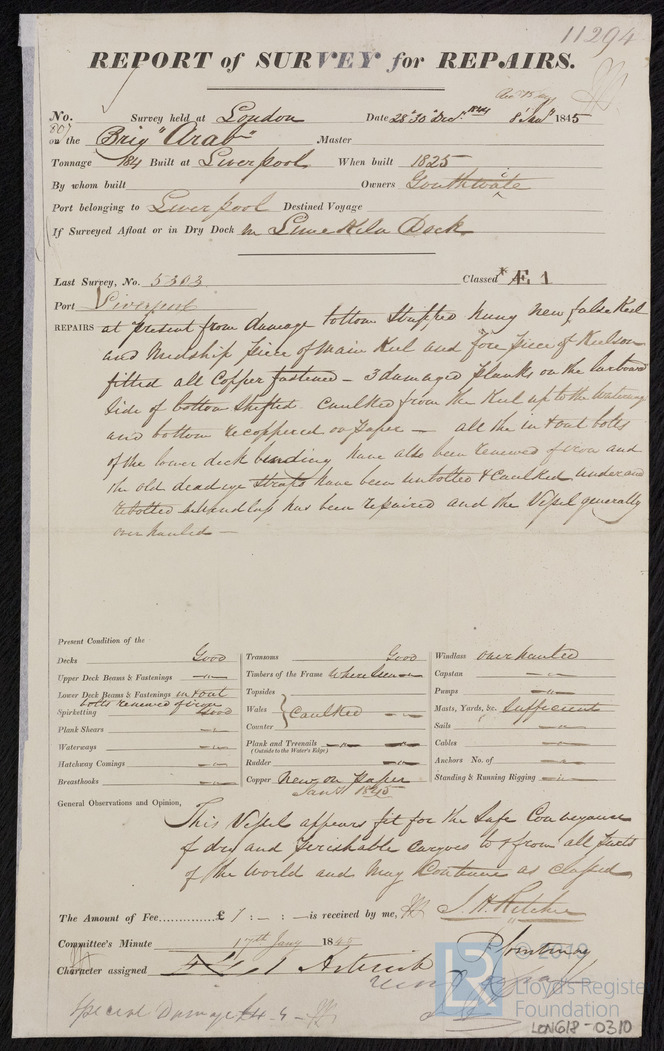 11294
REPORT of SURVEY for REPAIRS.
No. 807 Survey held at London Date 28 & 30 Decr. 1844 8 Jany 1845
on the Brig "Arab" Master
Tonnage 184 Built at Liverpool When built 1825
By whom built Owners Gouthwate
Port belonging to Liverpool Destined Voyage
If Surveyed Afloat or in Dry Dock in Lime Kiln Dock
Last Survey, No. 5303 Classed Æ 1
Port Liverpool
REPAIRS at present from damage bottom Stripped hung new false Keel
and Midship piece of Main Keel and Fore piece of Keelson
fitted all Copper fastened – 3 damaged planks on the larboard
Side of bottom shifted caulked from the Keel up to the Waterways
and bottom recoppered on paper – all the in & out bolts
of the lower deck binding have also been renewed of iron and
the old deadeye straps have been unbolted & Caulked under and
rebolted has been repaired and the Vessel generally
overhauled –
Present Condition of the
Decks Good
Upper Deck Beams & Fastenings –"–
Lower Deck Beams & Fastenings in & out
bolts renewed of iron
Spirketting Good
Plank Shears –"–
Waterways –"–
Hatchway Comings –"–
Breasthooks –"–
Transoms Good
Timbers of the Frame where seen
Topsides
Wales } Caulked –"–
Counter
Plank and Treenails –"– –"–
(Outside to the Water's Edge)
Rudder –"–
Copper New on paper
Jany 1845
Windlass overhauled
Capstan –"–
Pumps –"–
Masts, Yards, &c. Sufficient
Sails –"–
Cables –"–
Anchors No. of –"–
Standing & Running Rigging –"–
General Observations and Opinion,
This Vessel appears fit for the Safe Conveyance
of dry and perishable cargoes to & from all parts
of the World and May Continue as classed
The Amount of Fee............£ 1 : – : – is received by me,
Committee's Minute 17th Jany 1845
Character assigned Æ 1
Special Damage
© 2019
LR
Lloyd's Register
Foundation
LON618-0310